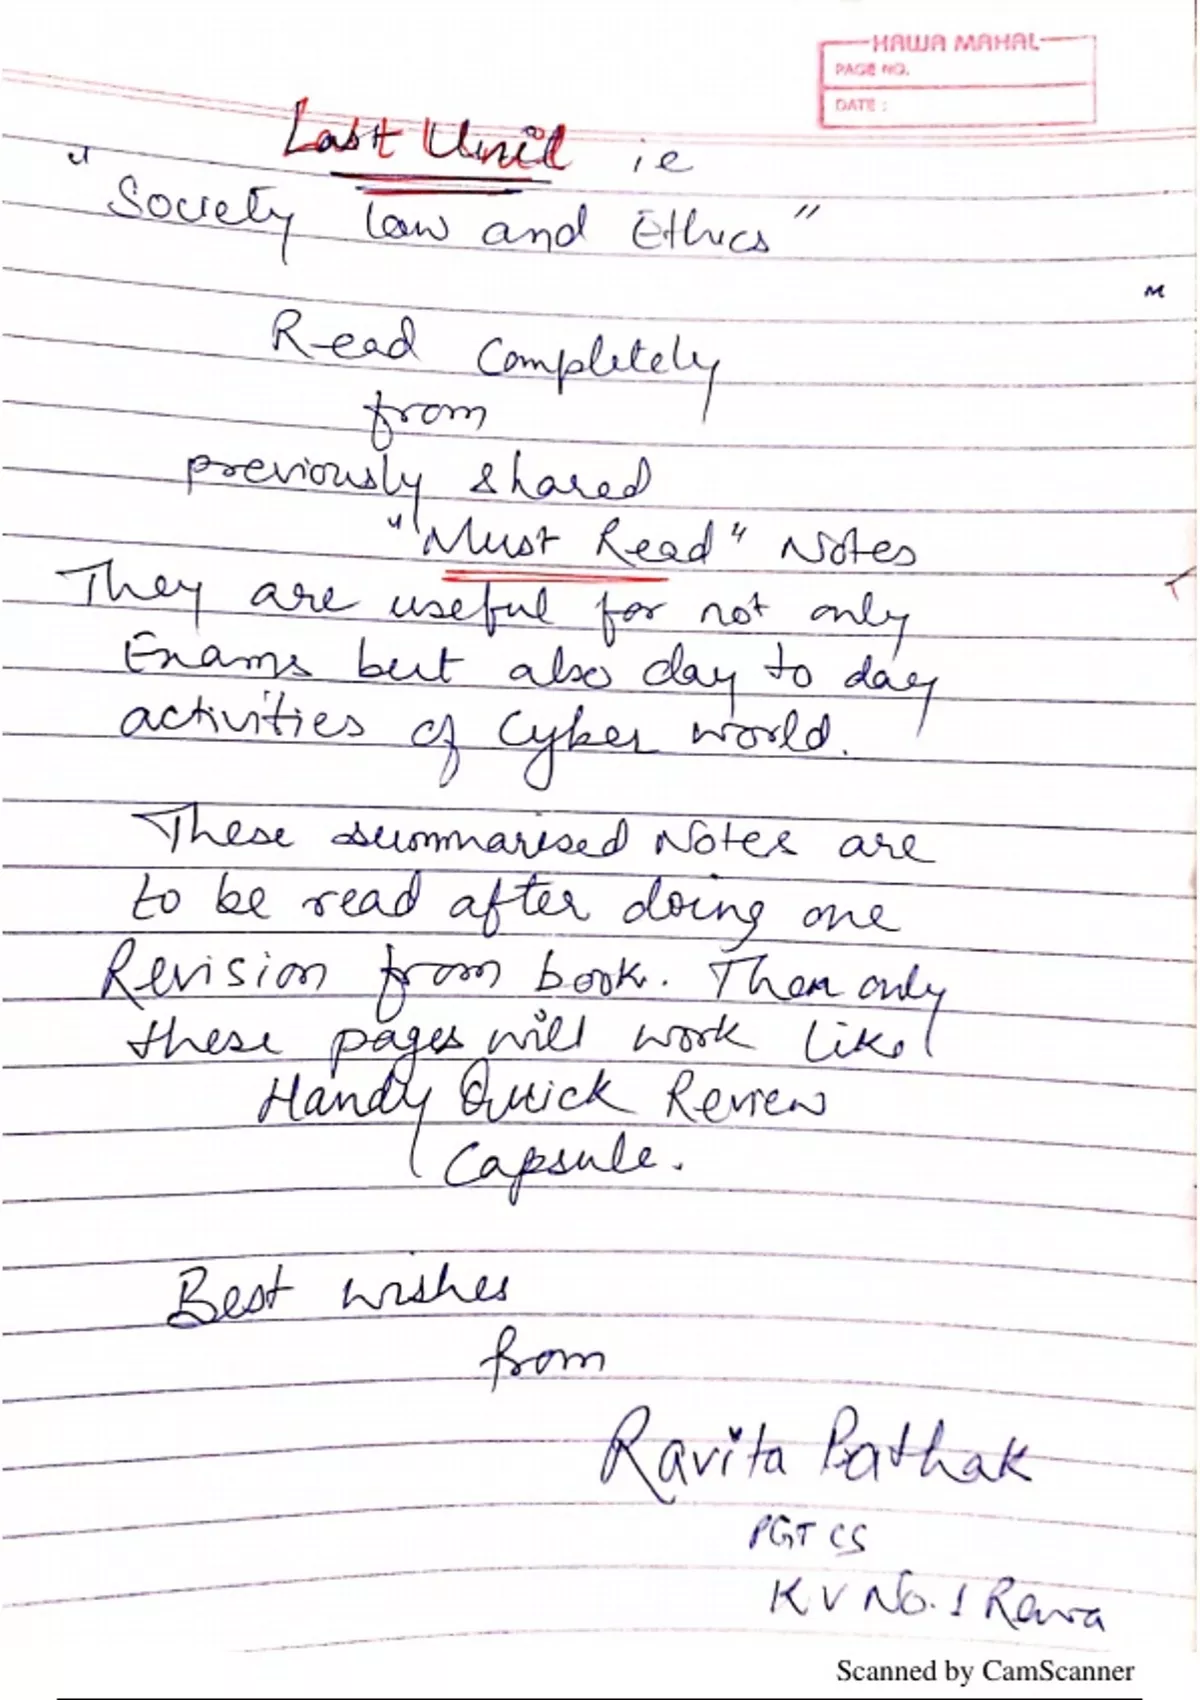 HAWA MAHAL
PAGE NO.
DATE :
Last Unit ie
"Society law and Ethics"
Read Completely
from
previously shared
"Must Read" Notes
They are useful for not only
Exams but also day to day
activities of Cyber world.
These summarised Notes are
to be read after doing one
Revision from book. Then only
these pages will work like
Handy Quick Review
Capsule.
Best wishes
from
Ravita Pathak
PGT CS
K V No. 1 Rewa
Scanned by CamScanner